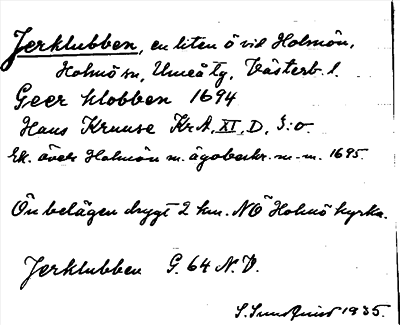 Jerklubben, en liten ö vid Holmön,
Holmö sn, Umeå tg, Västerb. l.
Geer klobben 1694
Hans Kruuse KrA, XI, D, 3:o.
Ek. över Holmön m. ägobeskr. m. m. 1695.
Ön belägen drygt 2 km. NÖ Holmö kyrka.
Jerklubben G. 64 N. V.
S. Sundquist 1935.